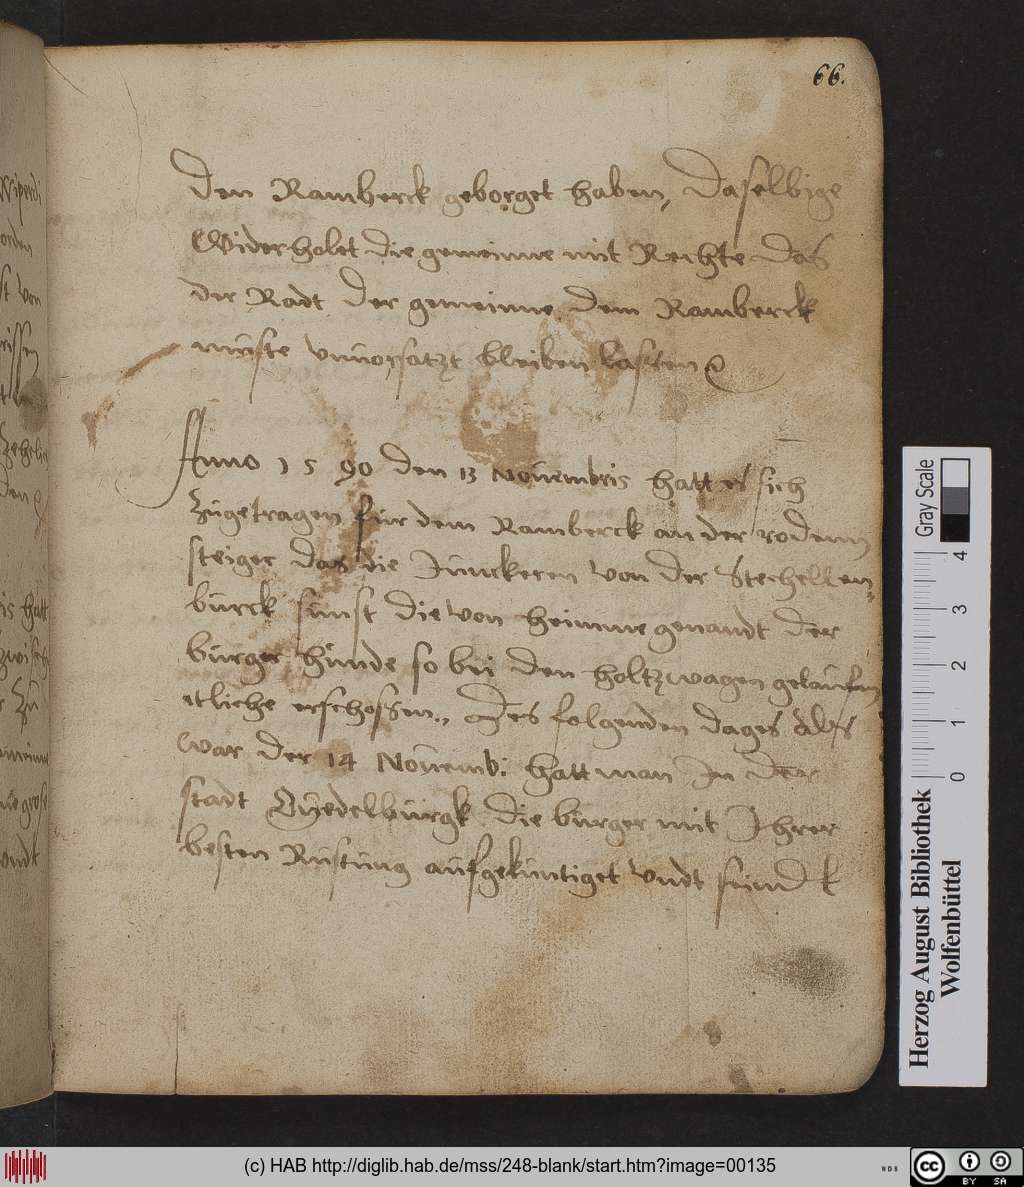 66.
den Ramberck geborget haben, Daselbige
Widerholet die gemeinne mit Rechte das
der Radt der gemeinne dem Ramberck
müste vnuorsatzt bleiben lassen
Anno 1590 den 13 Nouembris hatt es sich
zugetragen für dem Ramberck an der rodenn
steiger das die Junckeren von der Stechellen,
bürck sünst die von heimme genandt der
bürger hünde so bei den holtzwagen gelaufen
etliche erschossen., Des folgenden dages als
war der 14 Nouemb: hatt man In der
stadt Quedelbürgk die bürger mit Ihrer
besten Rüstüng aüfgekuntiget vndt seind
Gray Scale
4 3 2 1 0
Herzog August Bibliothek
Wolfenbüttel
(c) HAB http://diglib.hab.de/mss/248-blank/start.htm?image=00135
WDB
cc BY SA